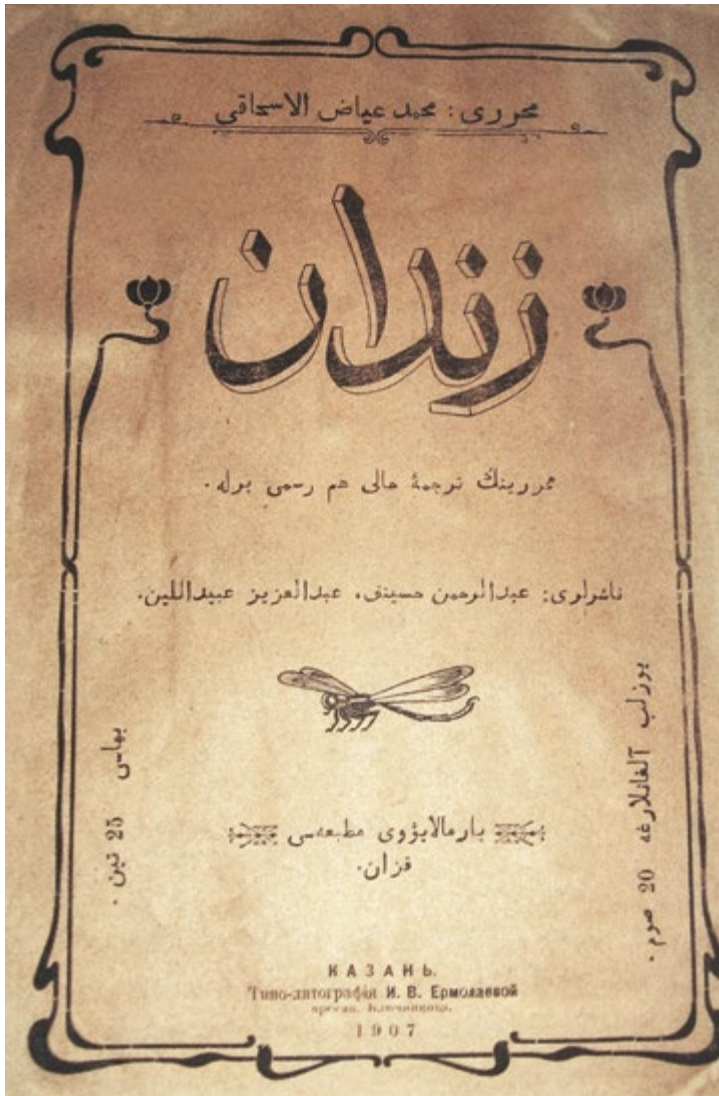 محرری: محمد عیاض الاسحاقی
زندان
محررینڭ ترجمهٔ حالی هم رسمی برله.
ناشرلری: عبدالرحمن حسینف، عبدالعزیز عبیداللین.
بهاسی 25 تین.
یوزلب آلغانلارغه 20 صوم.
یارمالایؤوی مطبعه‌سی
قزان.
КАЗАНЬ.
Типо-литографія И. В. Ермолаевой
1907